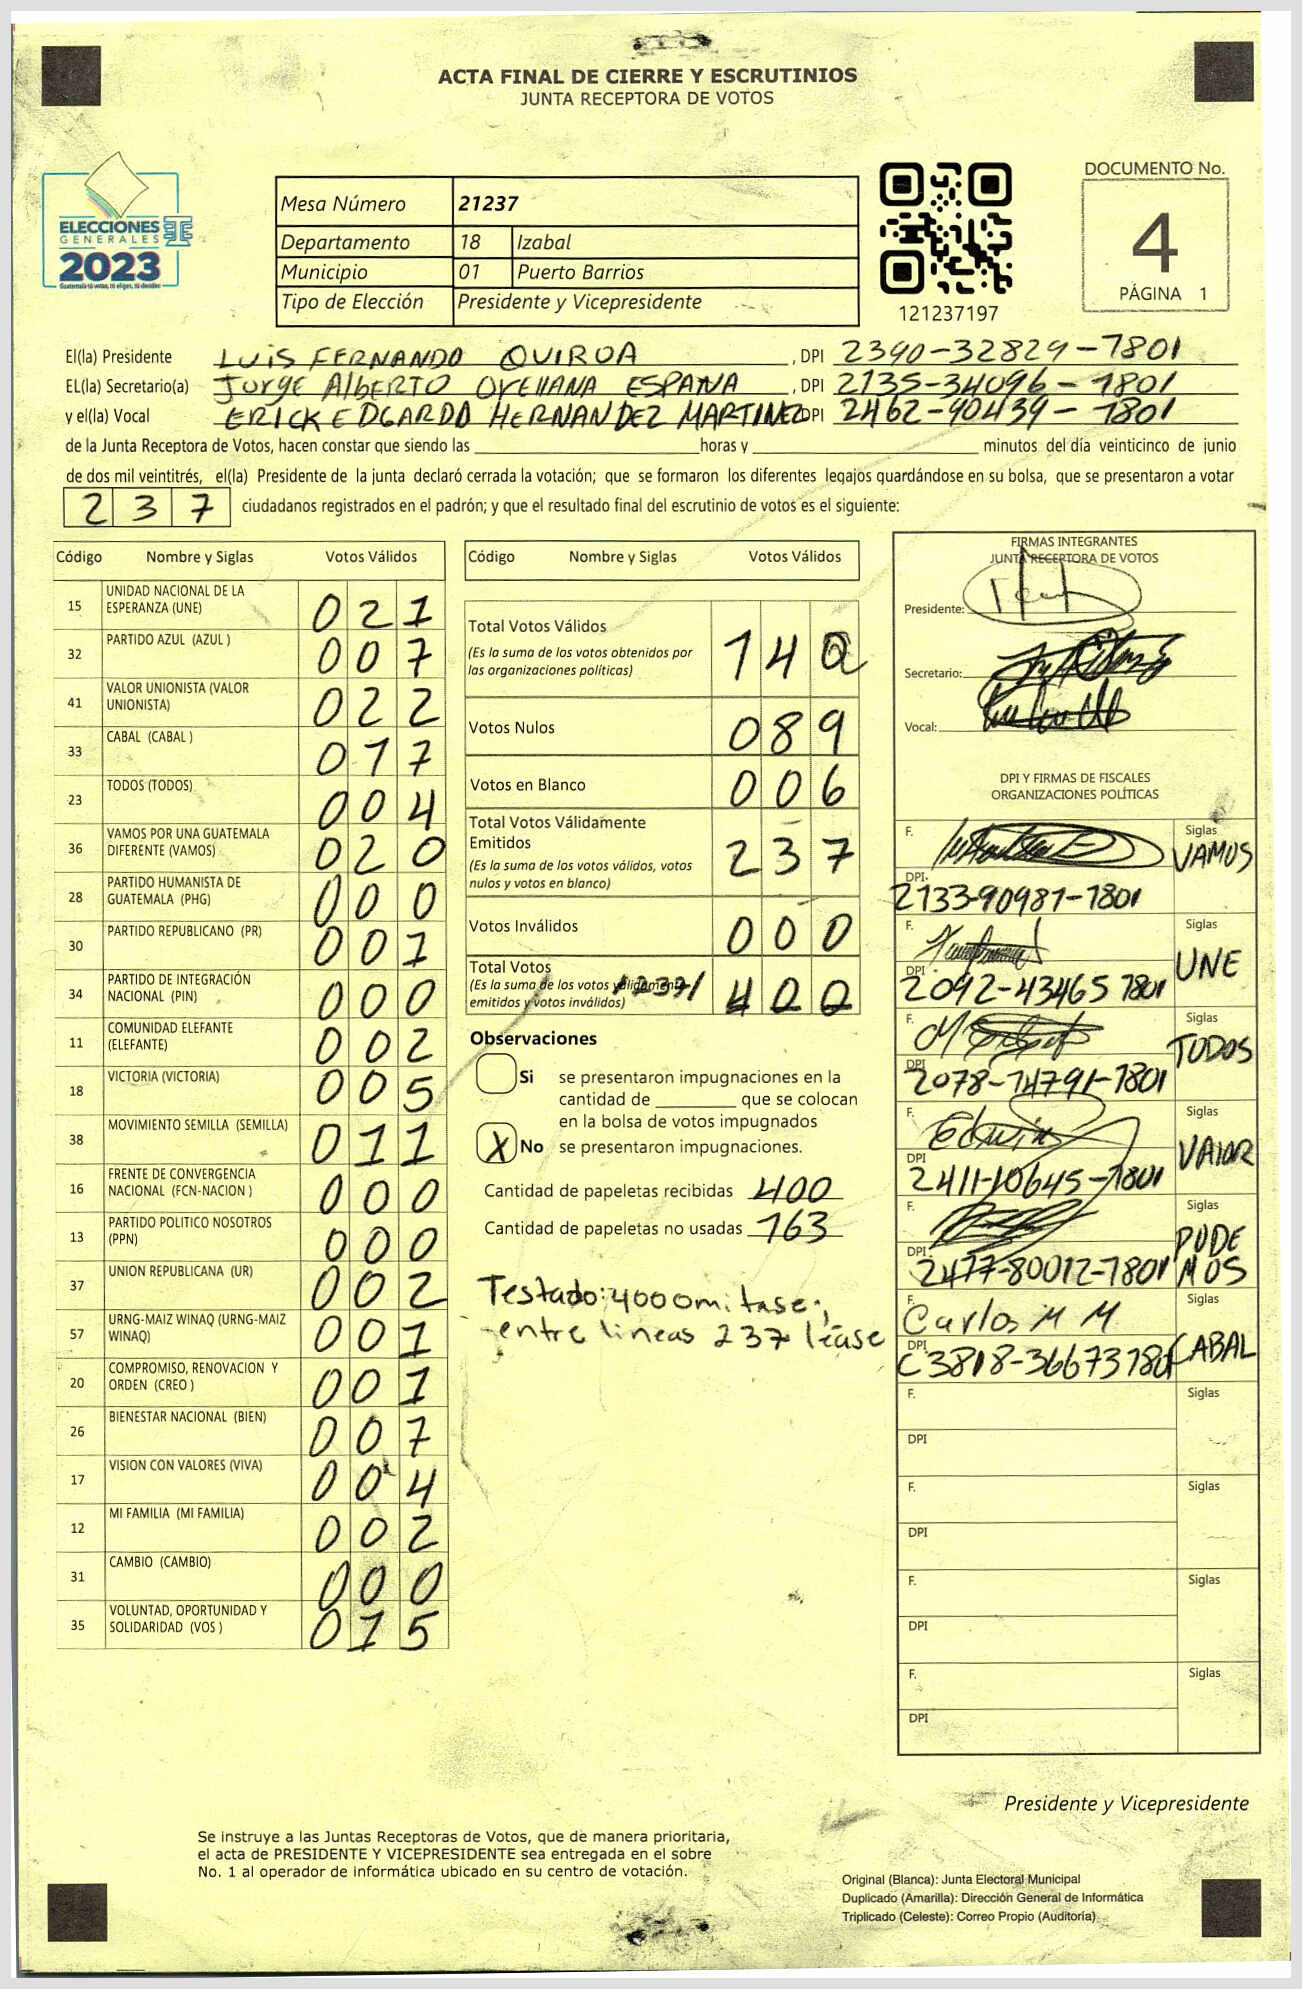 ACTA FINAL DE CIERRE Y ESCRUTINIOS
JUNTA RECEPTORA DE VOTOS
ELECCIONES
GENERALES
2023
Guatemala tú votas, tú eliges, tú decides
Mesa Número 21237
Departamento 18 Izabal
Municipio 01 Puerto Barrios
Tipo de Elección Presidente y Vicepresidente
121237197
DOCUMENTO No.
4
PÁGINA 1
El(la) Presidente LUIS FERNANDO QUIROA , DPI 2390-32829-1801
EL(la) Secretario(a) Jorge ALBERTO ORELLANA ESPAÑA , DPI 2135-34096-1801
y el(la) Vocal ERICK EDGARDO HERNANDEZ MARTINEZ DPI 2462-90439-1801
de la Junta Receptora de Votos, hacen constar que siendo las horas y minutos del día veinticinco de junio
de dos mil veintitrés, el(la) Presidente de la junta declaró cerrada la votación; que se formaron los diferentes legajos guardándose en su bolsa, que se presentaron a votar
237 ciudadanos registrados en el padrón; y que el resultado final del escrutinio de votos es el siguiente:
Código Nombre y Siglas Votos Válidos
15 UNIDAD NACIONAL DE LA ESPERANZA (UNE) 021
32 PARTIDO AZUL (AZUL ) 007
41 VALOR UNIONISTA (VALOR UNIONISTA) 022
33 CABAL (CABAL ) 017
23 TODOS (TODOS) 004
36 VAMOS POR UNA GUATEMALA DIFERENTE (VAMOS) 020
28 PARTIDO HUMANISTA DE GUATEMALA (PHG) 000
30 PARTIDO REPUBLICANO (PR) 001
34 PARTIDO DE INTEGRACIÓN NACIONAL (PIN) 000
11 COMUNIDAD ELEFANTE (ELEFANTE) 002
18 VICTORIA (VICTORIA) 005
38 MOVIMIENTO SEMILLA (SEMILLA) 011
16 FRENTE DE CONVERGENCIA NACIONAL (FCN-NACION ) 000
13 PARTIDO POLITICO NOSOTROS (PPN) 000
37 UNION REPUBLICANA (UR) 002
57 URNG-MAIZ WINAQ (URNG-MAIZ WINAQ) 001
20 COMPROMISO, RENOVACION Y ORDEN (CREO ) 001
26 BIENESTAR NACIONAL (BIEN) 007
17 VISION CON VALORES (VIVA) 004
12 MI FAMILIA (MI FAMILIA) 002
31 CAMBIO (CAMBIO) 000
35 VOLUNTAD, OPORTUNIDAD Y SOLIDARIDAD (VOS ) 015
Código Nombre y Siglas Votos Válidos
Total Votos Válidos 14
(Es la suma de los votos obtenidos por
las organizaciones políticas)
Votos Nulos 089
Votos en Blanco 006
Total Votos Válidamente
Emitidos 237
(Es la suma de los votos válidos, votos
nulos y votos en blanco)
Votos Inválidos 000
Total Votos
(Es la suma de los votos válidamente 237 400
emitidos y votos inválidos)
Observaciones
Si se presentaron impugnaciones en la
cantidad de que se colocan
en la bolsa de votos impugnados
X No se presentaron impugnaciones.
Cantidad de papeletas recibidas 400
Cantidad de papeletas no usadas 163
Testado: 400 omitase;
entre lineas 237 lease
FIRMAS INTEGRANTES
JUNTA RECEPTORA DE VOTOS
Presidente:
Secretario:
Vocal:
DPI Y FIRMAS DE FISCALES
ORGANIZACIONES POLÍTICAS
F. Siglas VAMOS
DPI 2133-90981-1801
F. Siglas UNE
DPI 2092-43465 1801
F. Siglas TODOS
DPI 2078-74791-1801
F. Edwin Siglas VALOR
DPI 2411-10645-1801
F. Siglas PODEMOS
DPI 2477-80012-1801
F. Carlos M M Siglas CABAL
DPI C3818-36673 1801
F. Siglas
DPI
F. Siglas
DPI
F. Siglas
DPI
F. Siglas
DPI
Presidente y Vicepresidente
Se instruye a las Juntas Receptoras de Votos, que de manera prioritaria,
el acta de PRESIDENTE Y VICEPRESIDENTE sea entregada en el sobre
No. 1 al operador de informática ubicado en su centro de votación.
Original (Blanca): Junta Electoral Municipal
Duplicado (Amarilla): Dirección General de Informática
Triplicado (Celeste): Correo Propio (Auditoría)